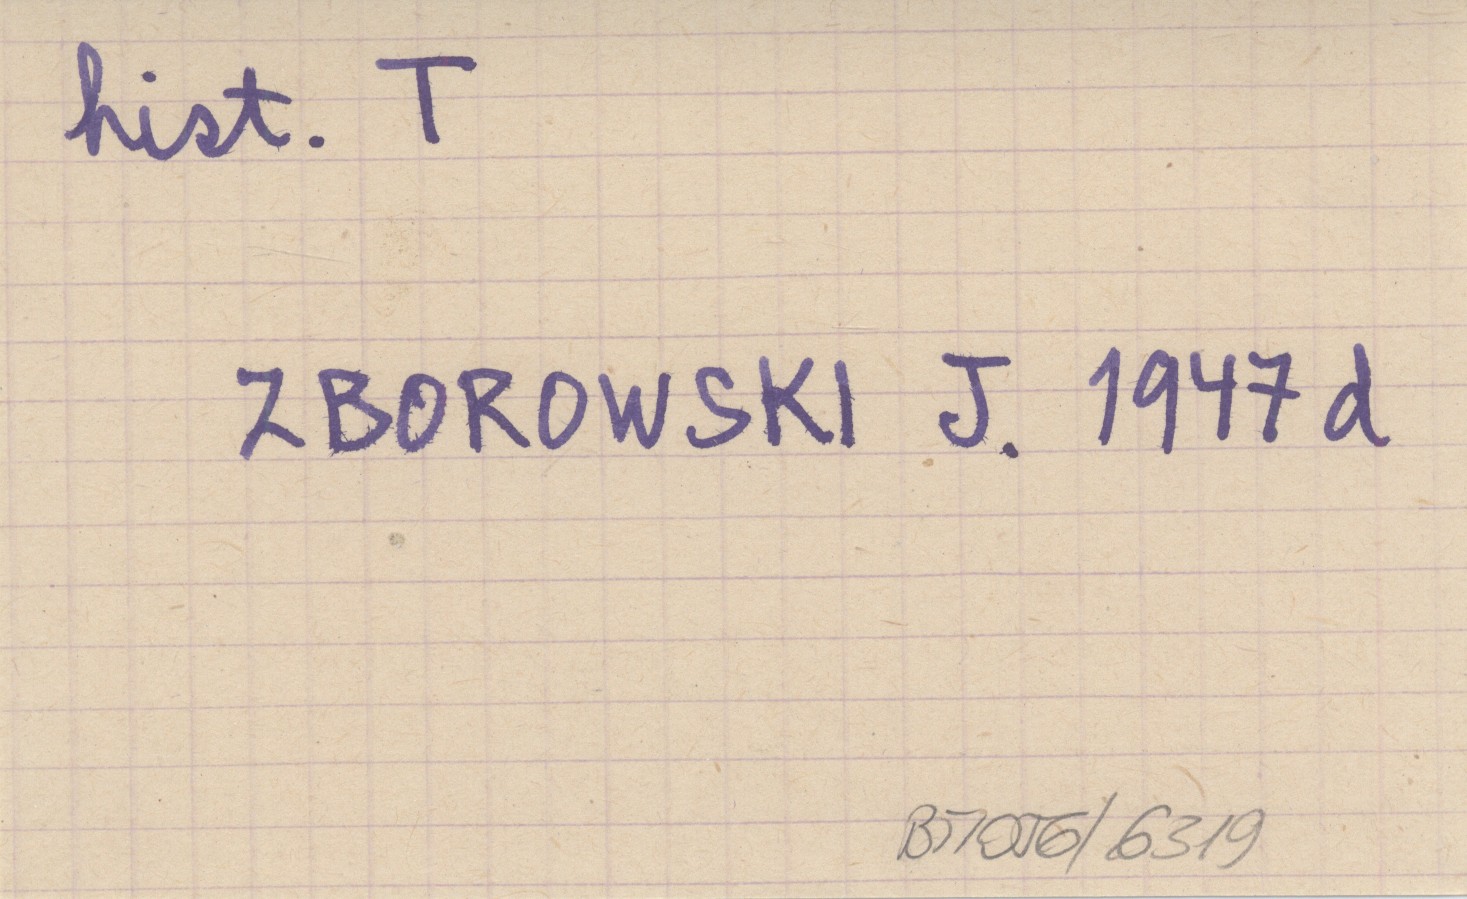 hist. T
ZBOROWSKI J. 1947 d
6319